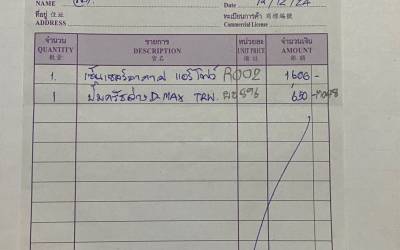 ที่อยู่ 住址
ADDRESS
Date 12/12/24
ทะเบียนการค้า 商標編號
Commercial License
จำนวน รายการ หน่วยละ จำนวนเงิน
QUANTITY DESCRIPTION UNIT PRICE AMOUNT
數量 貨名 價目 銀額
1. เซ็นเซอร์อากาศ แอร์โฟร์ R002 1600-
1 ปั๊มครัชล่าง D-MAX TRW. 650-